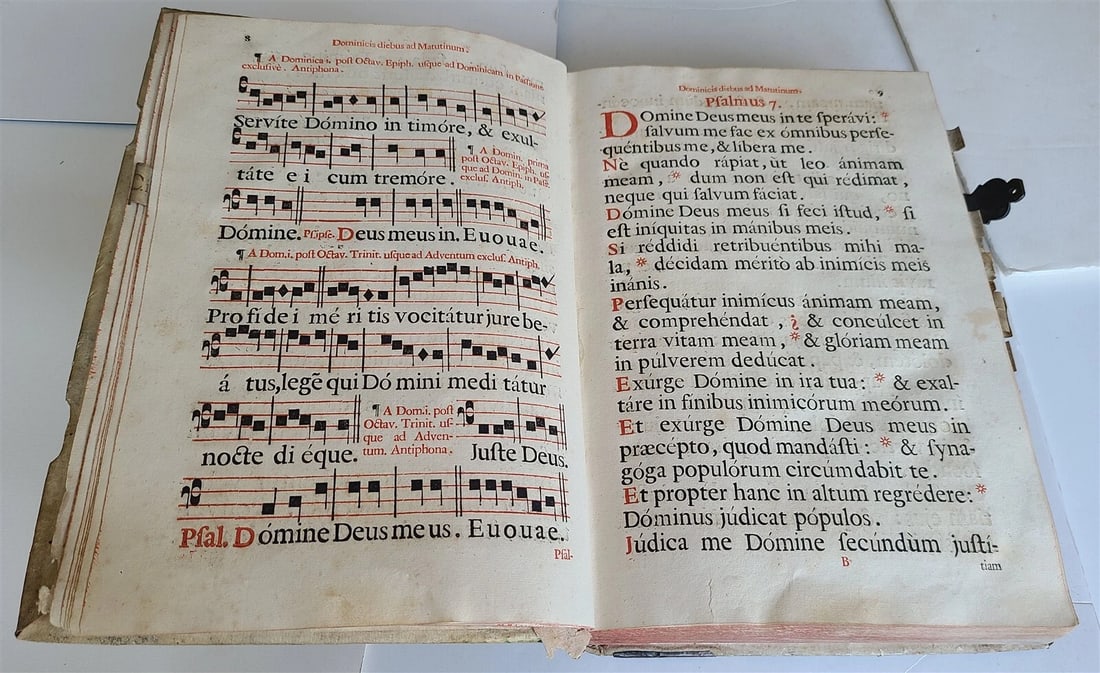 8
Dominicis diebus ad Matutinum.
¶ A Dominica i. poſt Octav. Epiph. uſque ad Dominicam in Paſſione
excluſivè. Antiphona.
Servíte Dómino in timóre, & exul-
táte e i cum tremóre.
¶ A Domin. prima
poſt Octav. Epiph. uſ-
que ad Domin. in Paſſ.
excluſ. Antiph.
Dómine. Pſ.ipſe. Deus meus in. E u o u a e.
¶ A Dom.i. poſt Octav. Trinit. uſque ad Adventum excluſ. Antiph.
Pro fi de i mé ri tis vocitátur jure be-
á tus, legẽ qui Dó mini medi tátur
nocte di éque.
¶ A Dom.i. poſt
Octav. Trinit. uſ-
que ad Adven-
tum. Antiphona.
Juſte Deus.
Pſal. Dómine Deus me us. E u o u a e.
Pſal-
9
Dominicis diebus ad Matutinum.
Pſalmus 7.
Domine Deus meus in te ſperávi: *
ſalvum me fac ex ómnibus perſe-
quéntibus me, & líbera me.
Nè quando rápiat, ùt leo ánimam
meam, * dum non eſt qui rédimat,
neque qui ſalvum fáciat.
Dómine Deus meus ſi feci iſtud, * ſi
eſt iníquitas in mánibus meis.
Si réddidi retribuéntibus mihi ma-
la, * décidam méritò ab inimícis meis
inánis.
Perſequátur inimícus ánimam meam,
& comprehéndat, & concúlcet in
terra vitam meam, * & glóriam meam
in púlverem dedúcat.
Exúrge Dómine in ira tua: * & exal-
táre in fínibus inimicórum meórum.
Et exúrge Dómine Deus meus in
præcépto, quod mandáſti: * & ſyna-
góga populórum circúmdabit te.
Et propter hanc in altum regrédere: *
Dóminus júdicat pópulos.
Júdica me Dómine ſecúndùm juſtí-
B
tiam